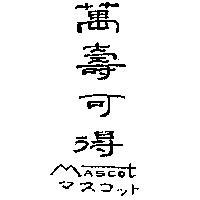 萬壽可得
MASCOT
マスコット